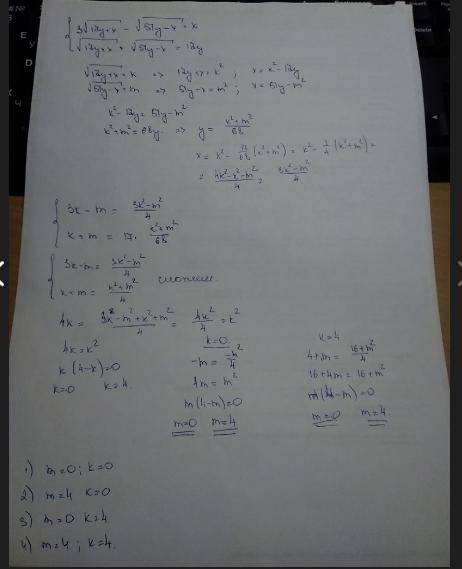 3√(12y+x) - √(51y-x) = x
√(12y+x) + √(51y-x) = 12y
√(12y+x) = k => 12y+x = k² ; x = k²-12y
√(51y-x) = m => 51y-x = m² ; x = 51y-m²
k²-12y = 51y-m²
k²+m² = 68y => y = (k²+m²)/68
= (4k²-k²-m²)/4 = (3k²-m²)/4
3k-m = (3k²-m²)/4
k+m = 17· (k²+m²)/68
3k-m = (3k²-m²)/4
k+m = (k²+m²)/4
сложим
4k = (3k²-m²+k²+m²)/4 = 4k²/4 = k²
4k = k²
k(4-k)=0
k=0 k=4
k=0
4m = m²
m(4-m)=0
m=0 m=4
k=4
4+m = (16+m²)/4
16+4m = 16+m²
m(4-m)=0
m=0 m=4
1) m=0; k=0
2) m=4 k=0
3) m=0 k=4
4) m=4; k=4.